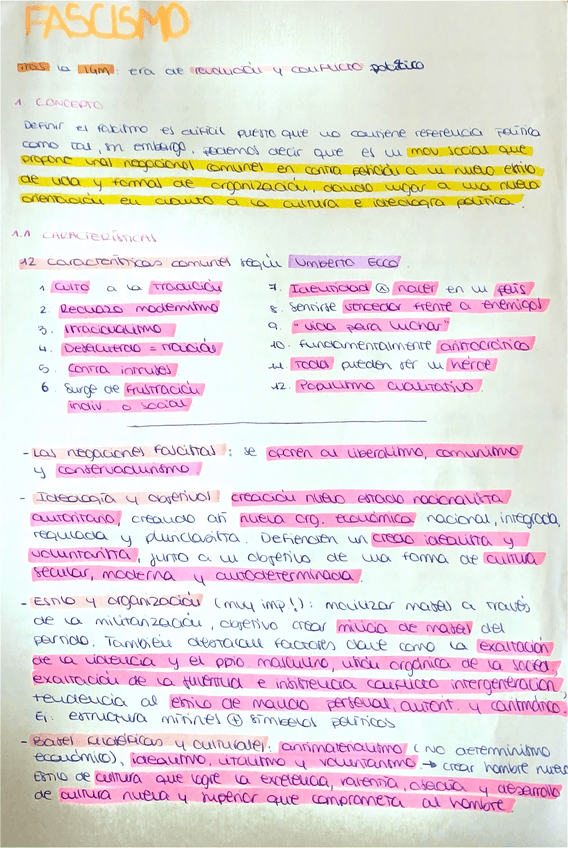 FASCISMO
tras la IGM: era de revolución y conflicto político
1. CONCEPTO
Definir el fascismo es difícil puesto que no contiene referencia política
como tal, sin embargo, podemos decir que es un mov social que
propone unas negaciones comunes en contra referidas a un nuevo estilo
de vida y formas de organización, dando lugar a una nueva
orientación en cuanto a la cultura e ideología política.
1.1 CARACTERÍSTICAS
12 características comunes según Umberto Ecco.
1. Culto a la tradición
2. Rechazo modernismo
3. Irracionalismo
4. Desacuerdo = traición
5. Contra intrusos
6. Surge de frustración
indiv. o social
7. Identidad nacer en un país
8. Sentirse vencedor frente a enemigos
9. "vida para luchar"
10. Fundamentalmente
11. Todos pueden ser un héroe
12. Populismo cualitativo.
- Las negaciones fascistas: se oponen al liberalismo, comunismo
y conservadurismo
- Ideología y objetivos: creación nuevo estado nacionalista
autoritario, creando así nueva org. económica nacional, integrada,
regulada y pluriclasista. Defienden un credo idealista y
voluntarista, junto a un objetivo de una forma de cultura
secular, moderna y autodeterminada.
- Estilo y organización (muy imp!): movilizar masas a través
de la militarización, objetivo crear milicia de masas del
partido. También destacan factores clave como la exaltación
de la violencia y el ppio masculino, unión orgánica de la socied,
exaltación de la juventud e insistencia conflicto intergeneración,
tendencia al estilo de mando personal, autorit. y carismático.
Ej: estructura mítines + símbolos políticos
- Bases filosóficas y culturales: antimaterialismo (no determinismo
económico), idealismo, vitalismo y voluntarismo → crear hombre nuevo
Estilo de cultura que logre la excelencia, valentía, osadía y desarrollo
de cultura nueva y superior que comprometa al hombre.